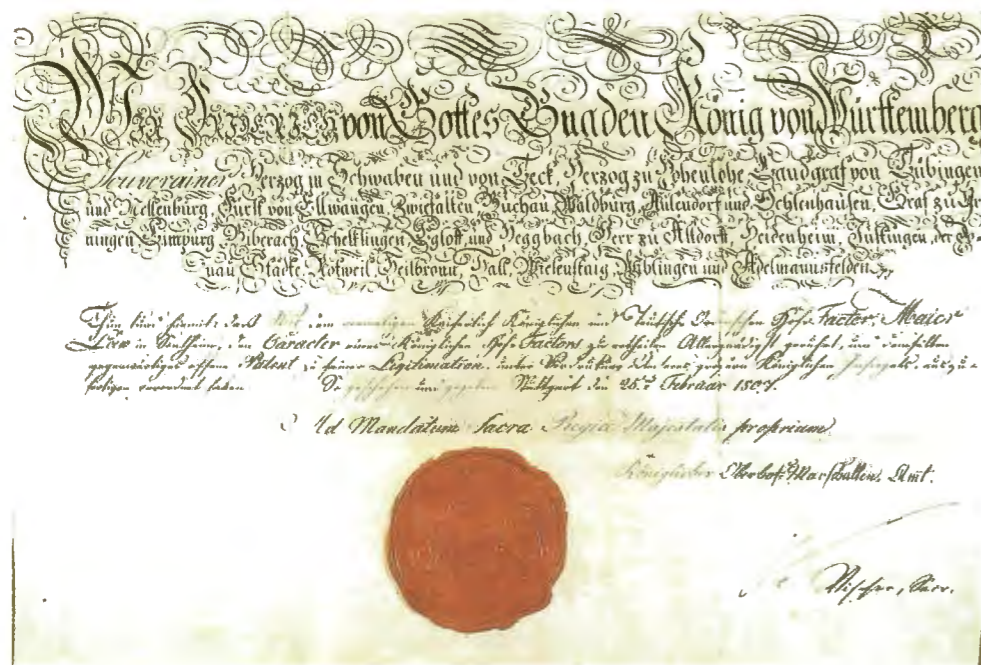 Wir Friderich von Gottes Gnaden König von Württemberg
Souverainer Herzog in Schwaben und von Teck, Herzog zu Hohenlohe, Landgraf von Tübingen
und Nellenburg, Fürst von Ellwangen, Zwiefalten, Buchau, Waldburg, Aulendorf und Ochsenhausen, Graf zu Grö-
ningen, Limpurg, Biberach, Schelklingen, Egloff, und Heggbach, Herr zu Altdorf, Heidenheim, Justingen, der Do-
nau Städte, Rotweil, Heilbronn, Hall, Wiesenstaig,
und Adelmannsfelden
Thun kund hiemit: daß Wir dem Kaiserlich Königlichen und Teutsch Hof Factor, Maier
Löw in Sontheim, den Caracter eines Königlichen Hof Factors zu ertheilen Allergnädigst geruhet, und demselben
gegenwärtiges offene Patent zu seiner Legitimation, unter Königlichen auszu-
fertigen verordnet haben. So geschehen und gegeben Stuttgart den 26. Februar 1807.
Ad Mandatum Sacra Regia Majestatis proprium.
Königlicher Oberhof Marschallen Amt.
Vischer, Secr.